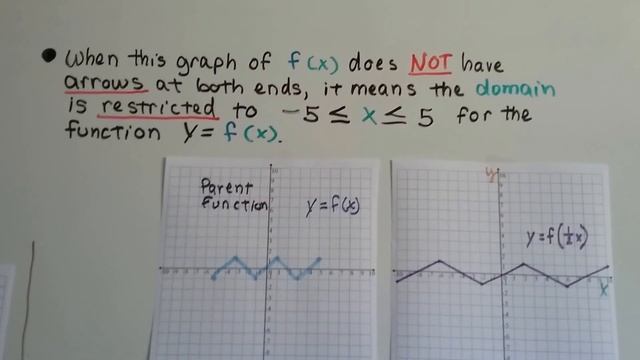 When this graph of f(x) does NOT have
arrows at both ends, it means the domain
is restricted to -5 ≤ x ≤ 5 for the
function y = f(x).
Parent
Function
y = f(x)
y
y = f(½x)
x